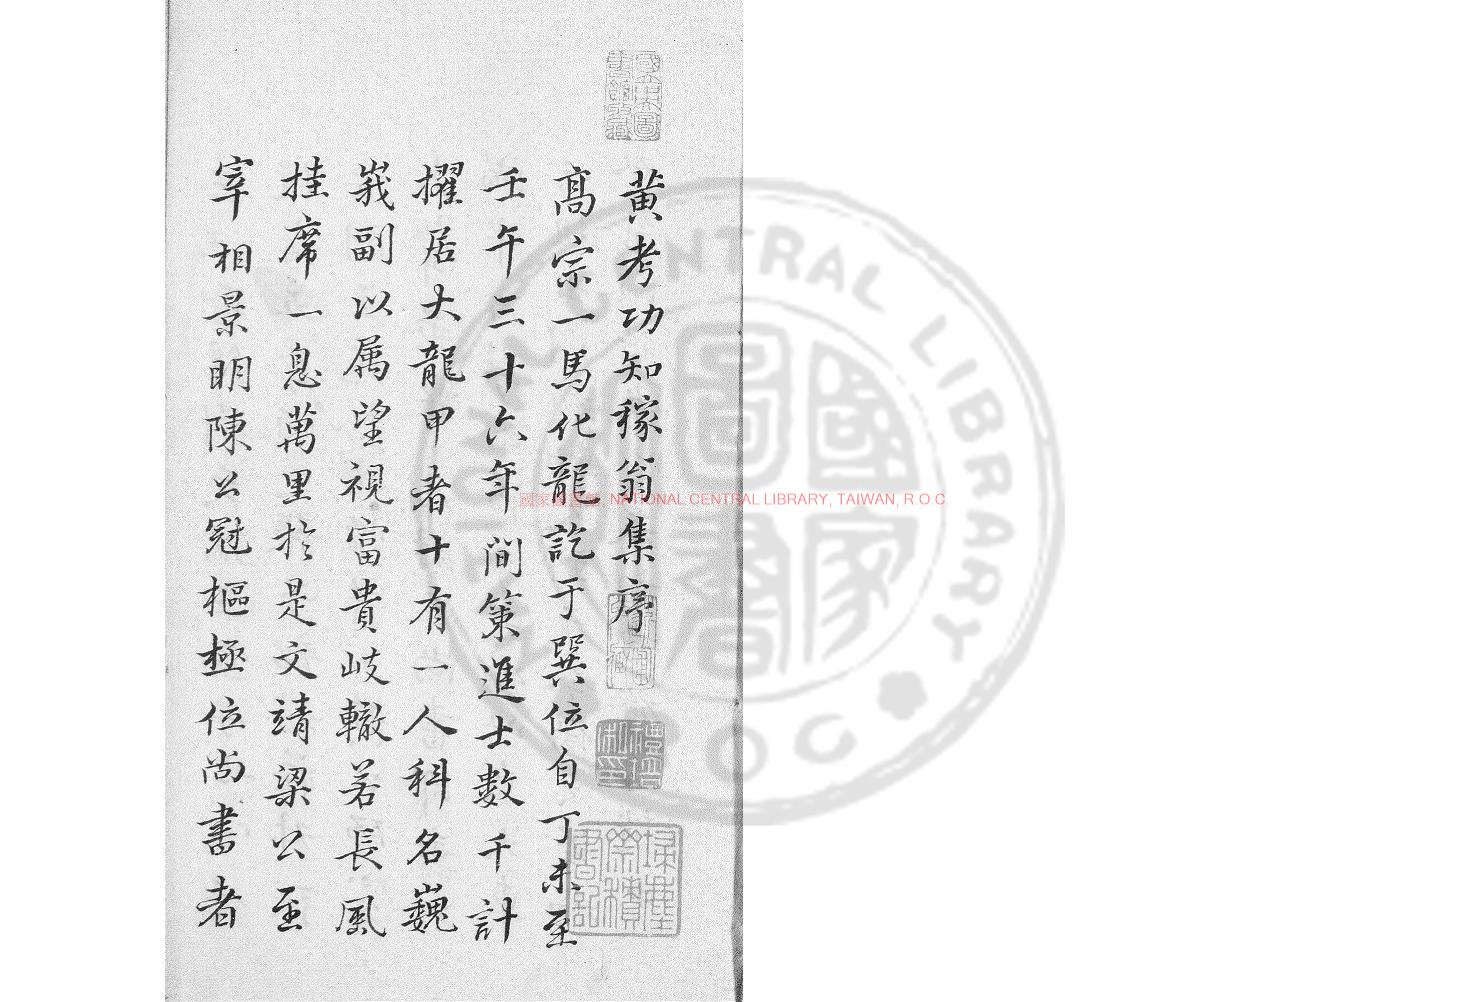 黄考功知稼翁集序
髙宗一馬化龍訖于巽位自丁未至
壬午三十六年間策進士數千計
擢居大龍甲者十有一人科名巍
峩副以属望視富貴岐轍若長風
挂席一息萬里於是文靖梁公至
宰相景明陳公冠樞極位尚書者
國家圖書館, NATIONAL CENTRAL LIBRARY, TAIWAN, R.O.C.
NATIONAL CENTRAL LIBRARY
R O C
國家圖書